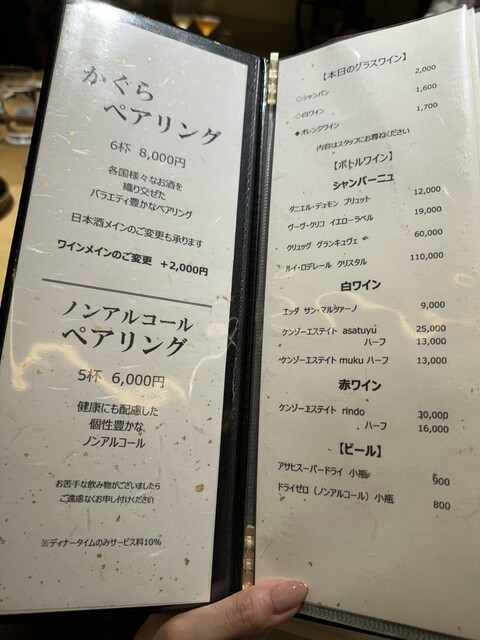 かぐら
ペアリング
6杯 8,000円
各国様々なお酒を
織り交ぜた
バラエティ豊かなペアリング
日本酒メインのご変更も承ります
ワインメインのご変更 +2,000円
ノンアルコール
ペアリング
5杯 6,000円
健康にも配慮した
個性豊かな
ノンアルコール
お苦手な飲み物がございましたら
ご遠慮なくお申し付けください
※ディナータイムのみサービス料10%
【本日のグラスワイン】
◇シャンパン 2,000
◇白ワイン 1,600
◆オレンジワイン 1,700
内容はスタッフにお尋ねください
【ボトルワイン】
シャンパーニュ
ダニエル・デュモン ブリュット 12,000
ヴーヴ・クリコ イエローラベル 19,000
クリュッグ グランキュヴェ 60,000
ルイ・ロデレール クリスタル 110,000
白ワイン
エッダ サン・マルツァーノ 9,000
ケンゾーエステイト asatuyu 25,000
ハーフ 13,000
ケンゾーエステイト muku ハーフ 13,000
赤ワイン
ケンゾーエステイト rindo 30,000
ハーフ 16,000
【ビール】
アサヒスーパードライ 小瓶 900
ドライゼロ（ノンアルコール）小瓶 800